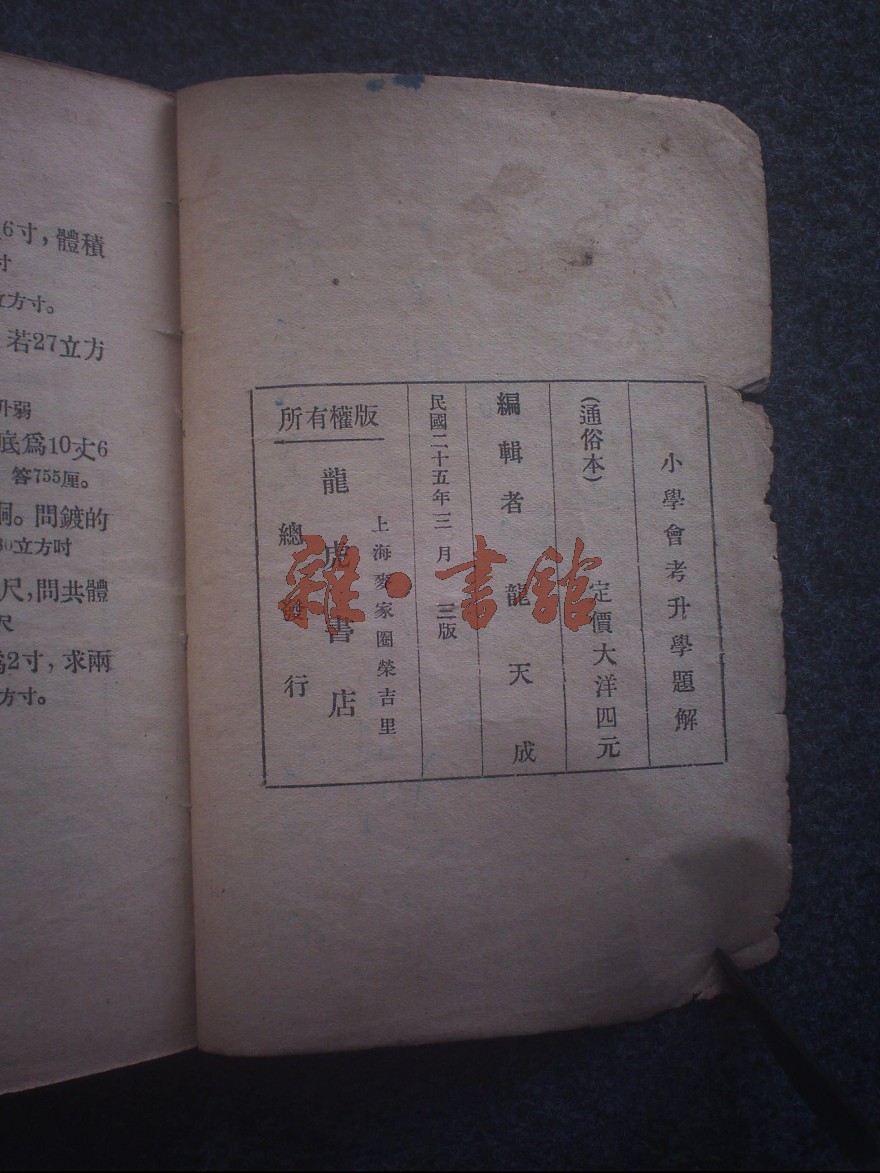 6寸，體積
寸
立方寸。
若27立方
升弱
底爲10丈6
答755厘。
銅。問鍍的
立方吋
尺，問共體
尺
爲2寸，求兩
方寸。
小學會考升學題解
(通俗本) 定價大洋四元
編輯者 龍天成
民國二十五年三月 三版
所有權版
上海麥家圈榮吉里
龍虎書店
總發行
雜·書館